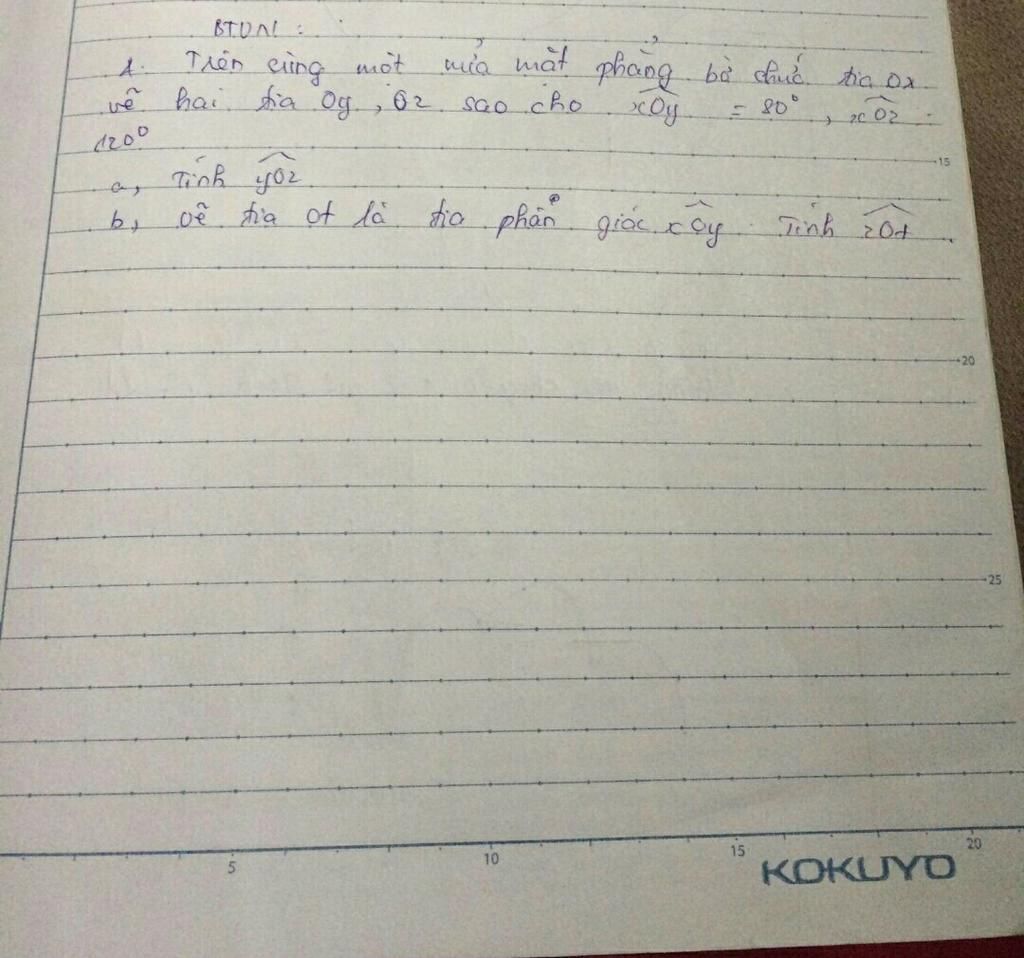 BTVN :
1. Trên cùng một nửa mặt phẳng bờ chứa tia Ox
vẽ hai tia Oy , Oz sao cho xOy = 80° , xOz =
120°
15
a, Tính yOz
b, vẽ tia Ot là tia phân giác xOy . Tính zOt
20
25
5 10 15 20
KOKUYO